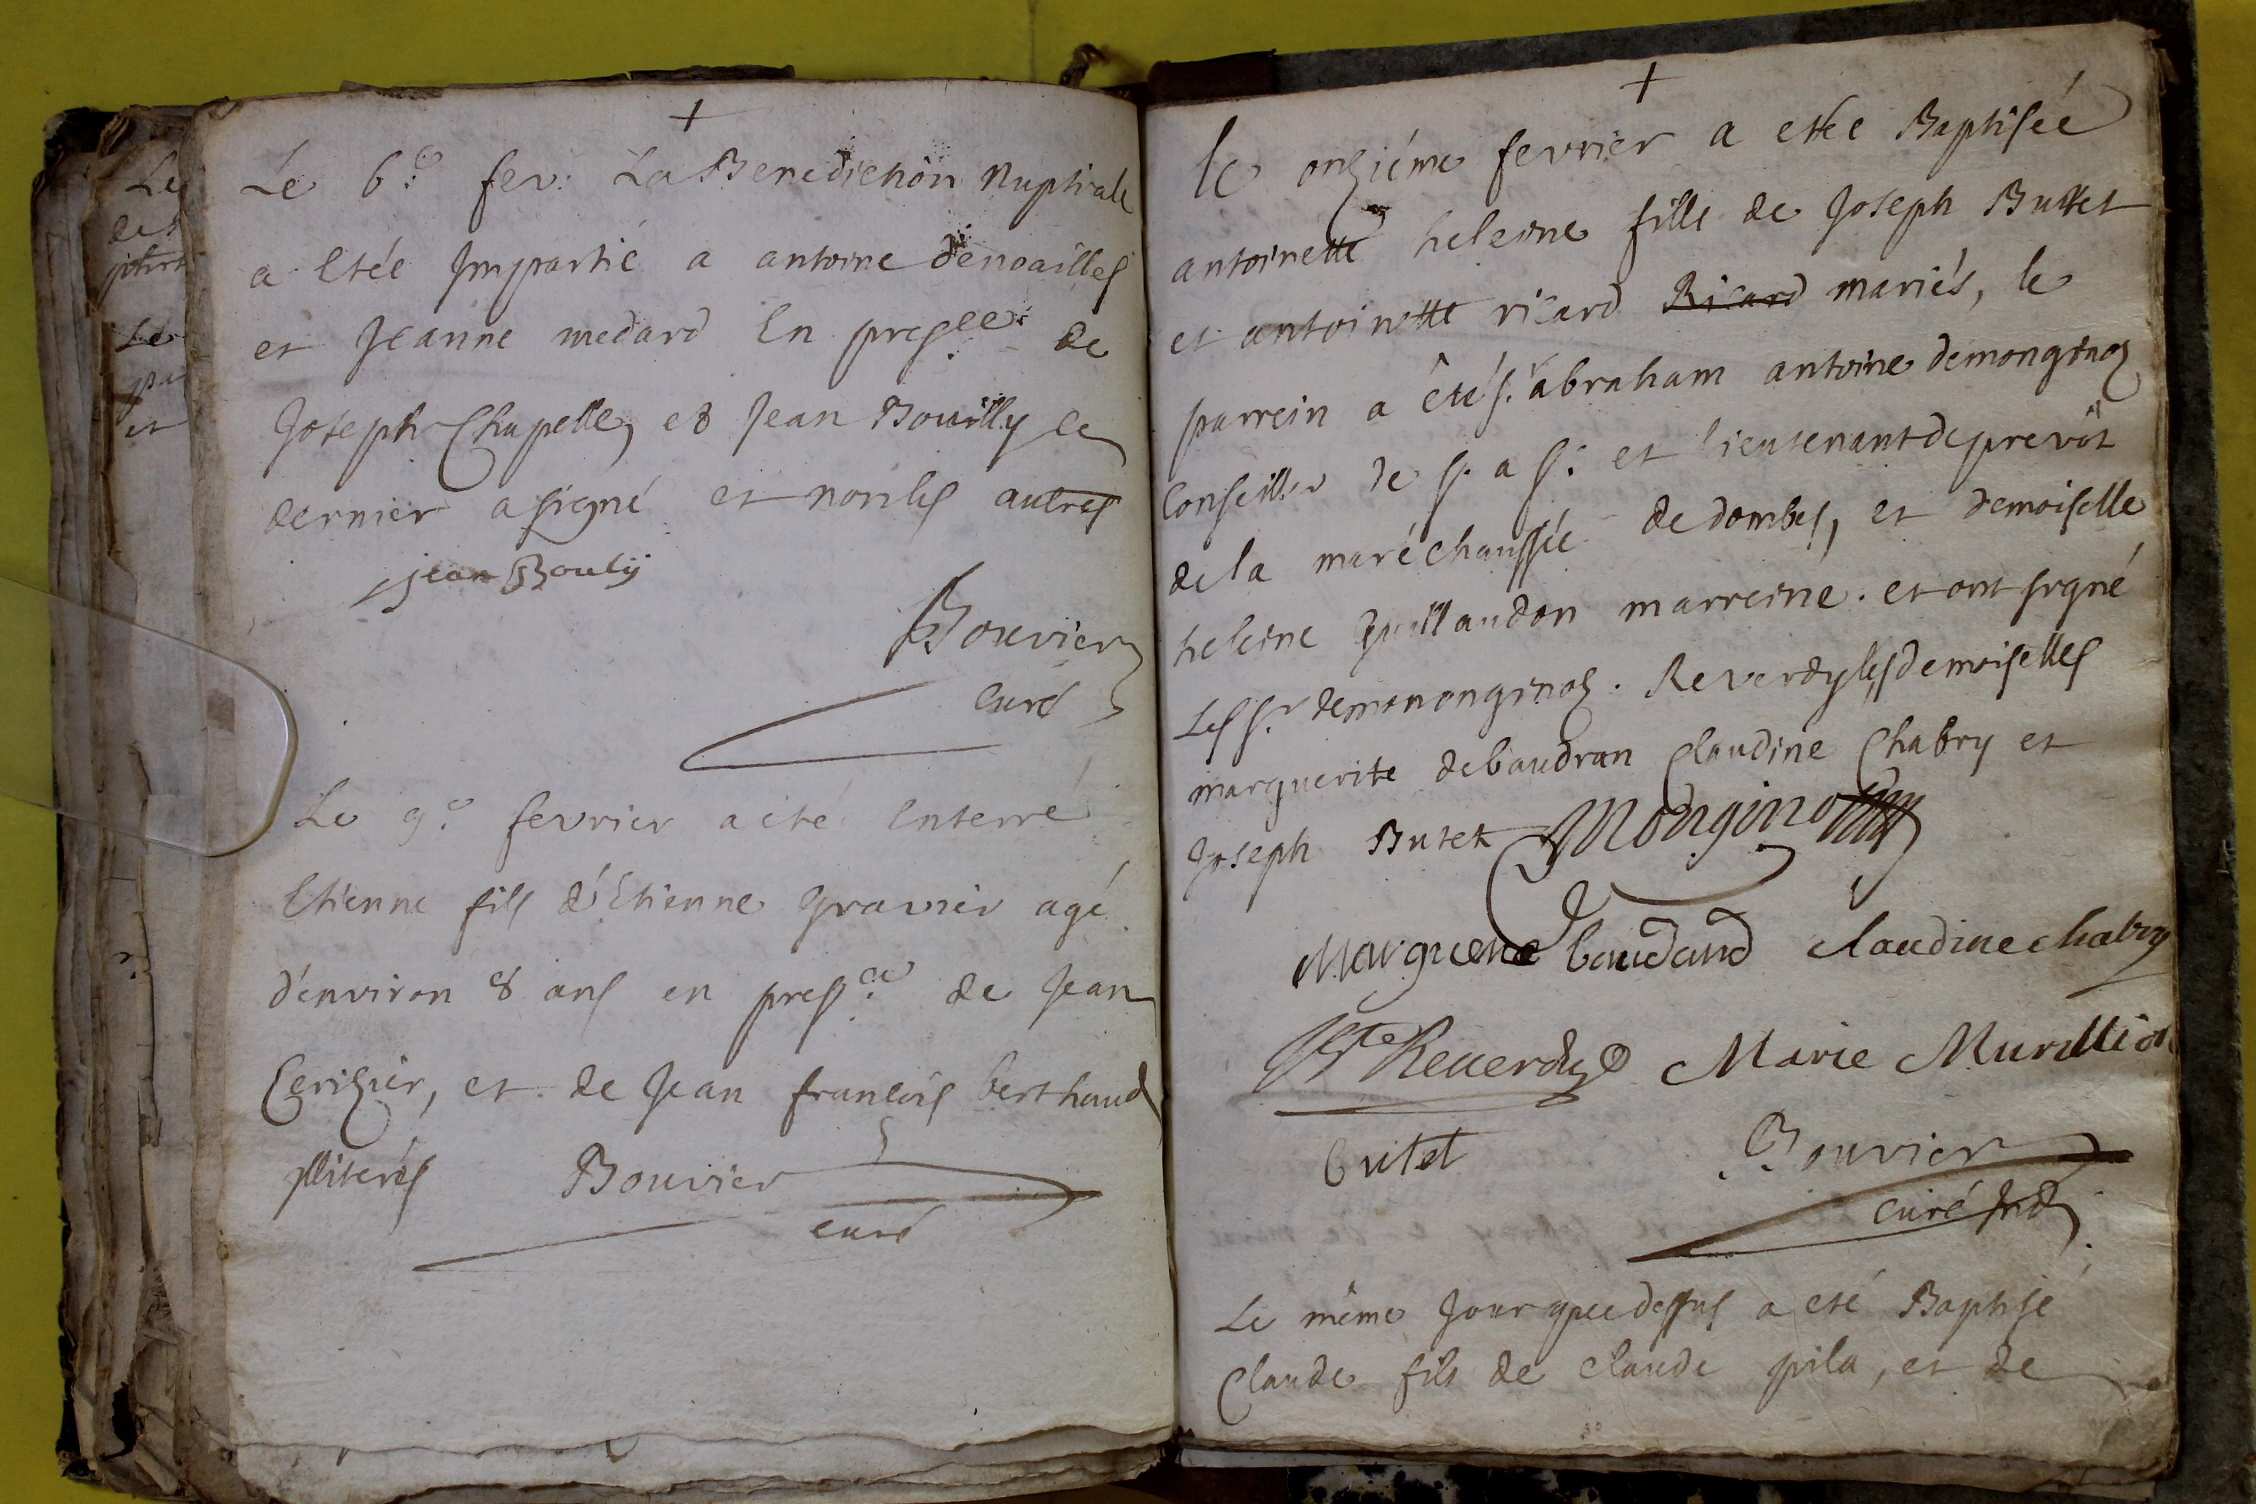 +
Le 6.e fev. La Benediction Nuptiale
a etée Impartie a antoine denoailles
et Jeanne medard En pres.ce de
Joseph Chapelle, et Jean Bouilly ce
dernier a signé et non les autres
jean Bouly
Bouvier
curé
Le 9.e fevrier a eté Enterré
Etienne fils d'Etienne Gravier agé
d'environ 8 ans en pres.ce de Jean
Cerizier, et de Jean francois berthaud
illiterés Bouvier
curé
+
le onziéme fevrier a etée Baptisée
antoinette heleine fille de Joseph Buttet
et antoinette ricard Ricard mariés, le
parrein a êté s.r abraham antoine demonginoz
Conseiller de s. a s. et lieutenant de prevôt
de la maréchaussée de dombes, et demoiselle
heleine Guillaudon marreine. et ont signé
Les s.r demononginoz. Reverdy les demoiselles
marguerite debaudran Claudine Chabry et
Joseph Butet Monginot
Marguerite baudrand claudine chabry
Reuerdy Marie
butet Bouvier
curé
Le même Jour que dessus a eté Baptisé
Claude fils de claude pila, et de